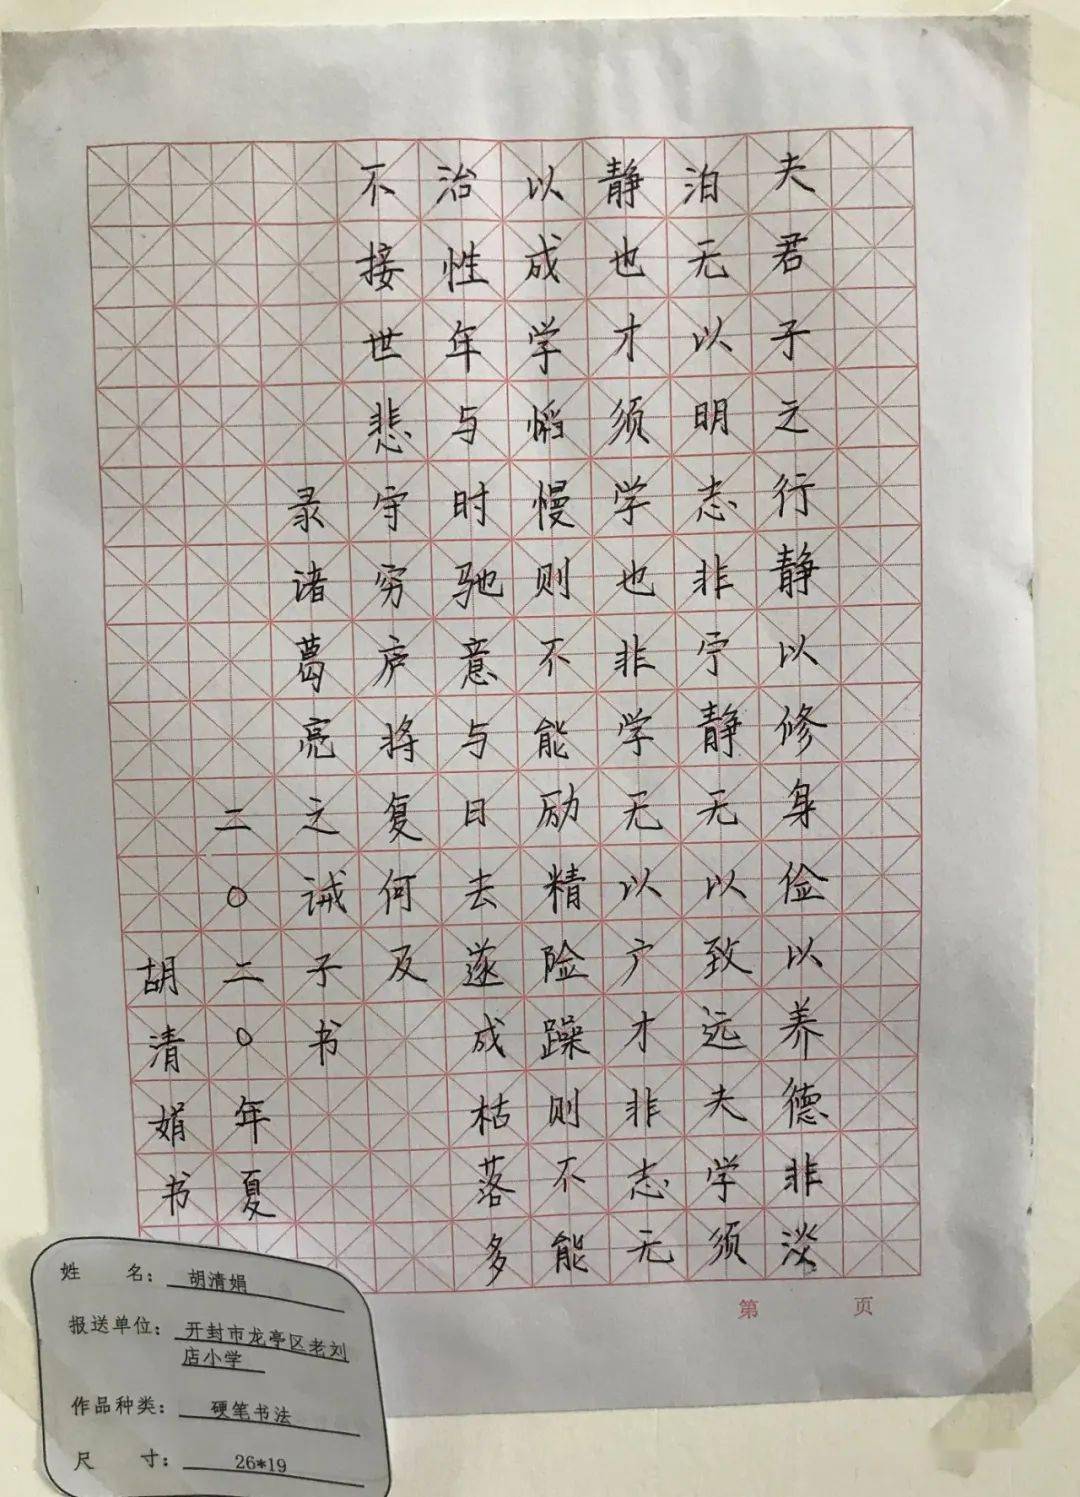 夫君子之行静以修身俭以养德非淡
泊无以明志非宁静无以致远夫学须
静也才须学也非学无以广才非志无
以成学慆慢则不能励精险躁则不能
治性年与时驰意与日去遂成枯落多
不接世悲守穷庐将复何及
录诸葛亮之诫子书
二〇二〇年夏
胡清娟书
第 页
姓 名：胡清娟
报送单位：开封市龙亭区老刘
店小学
作品种类：硬笔书法
尺 寸：26*19